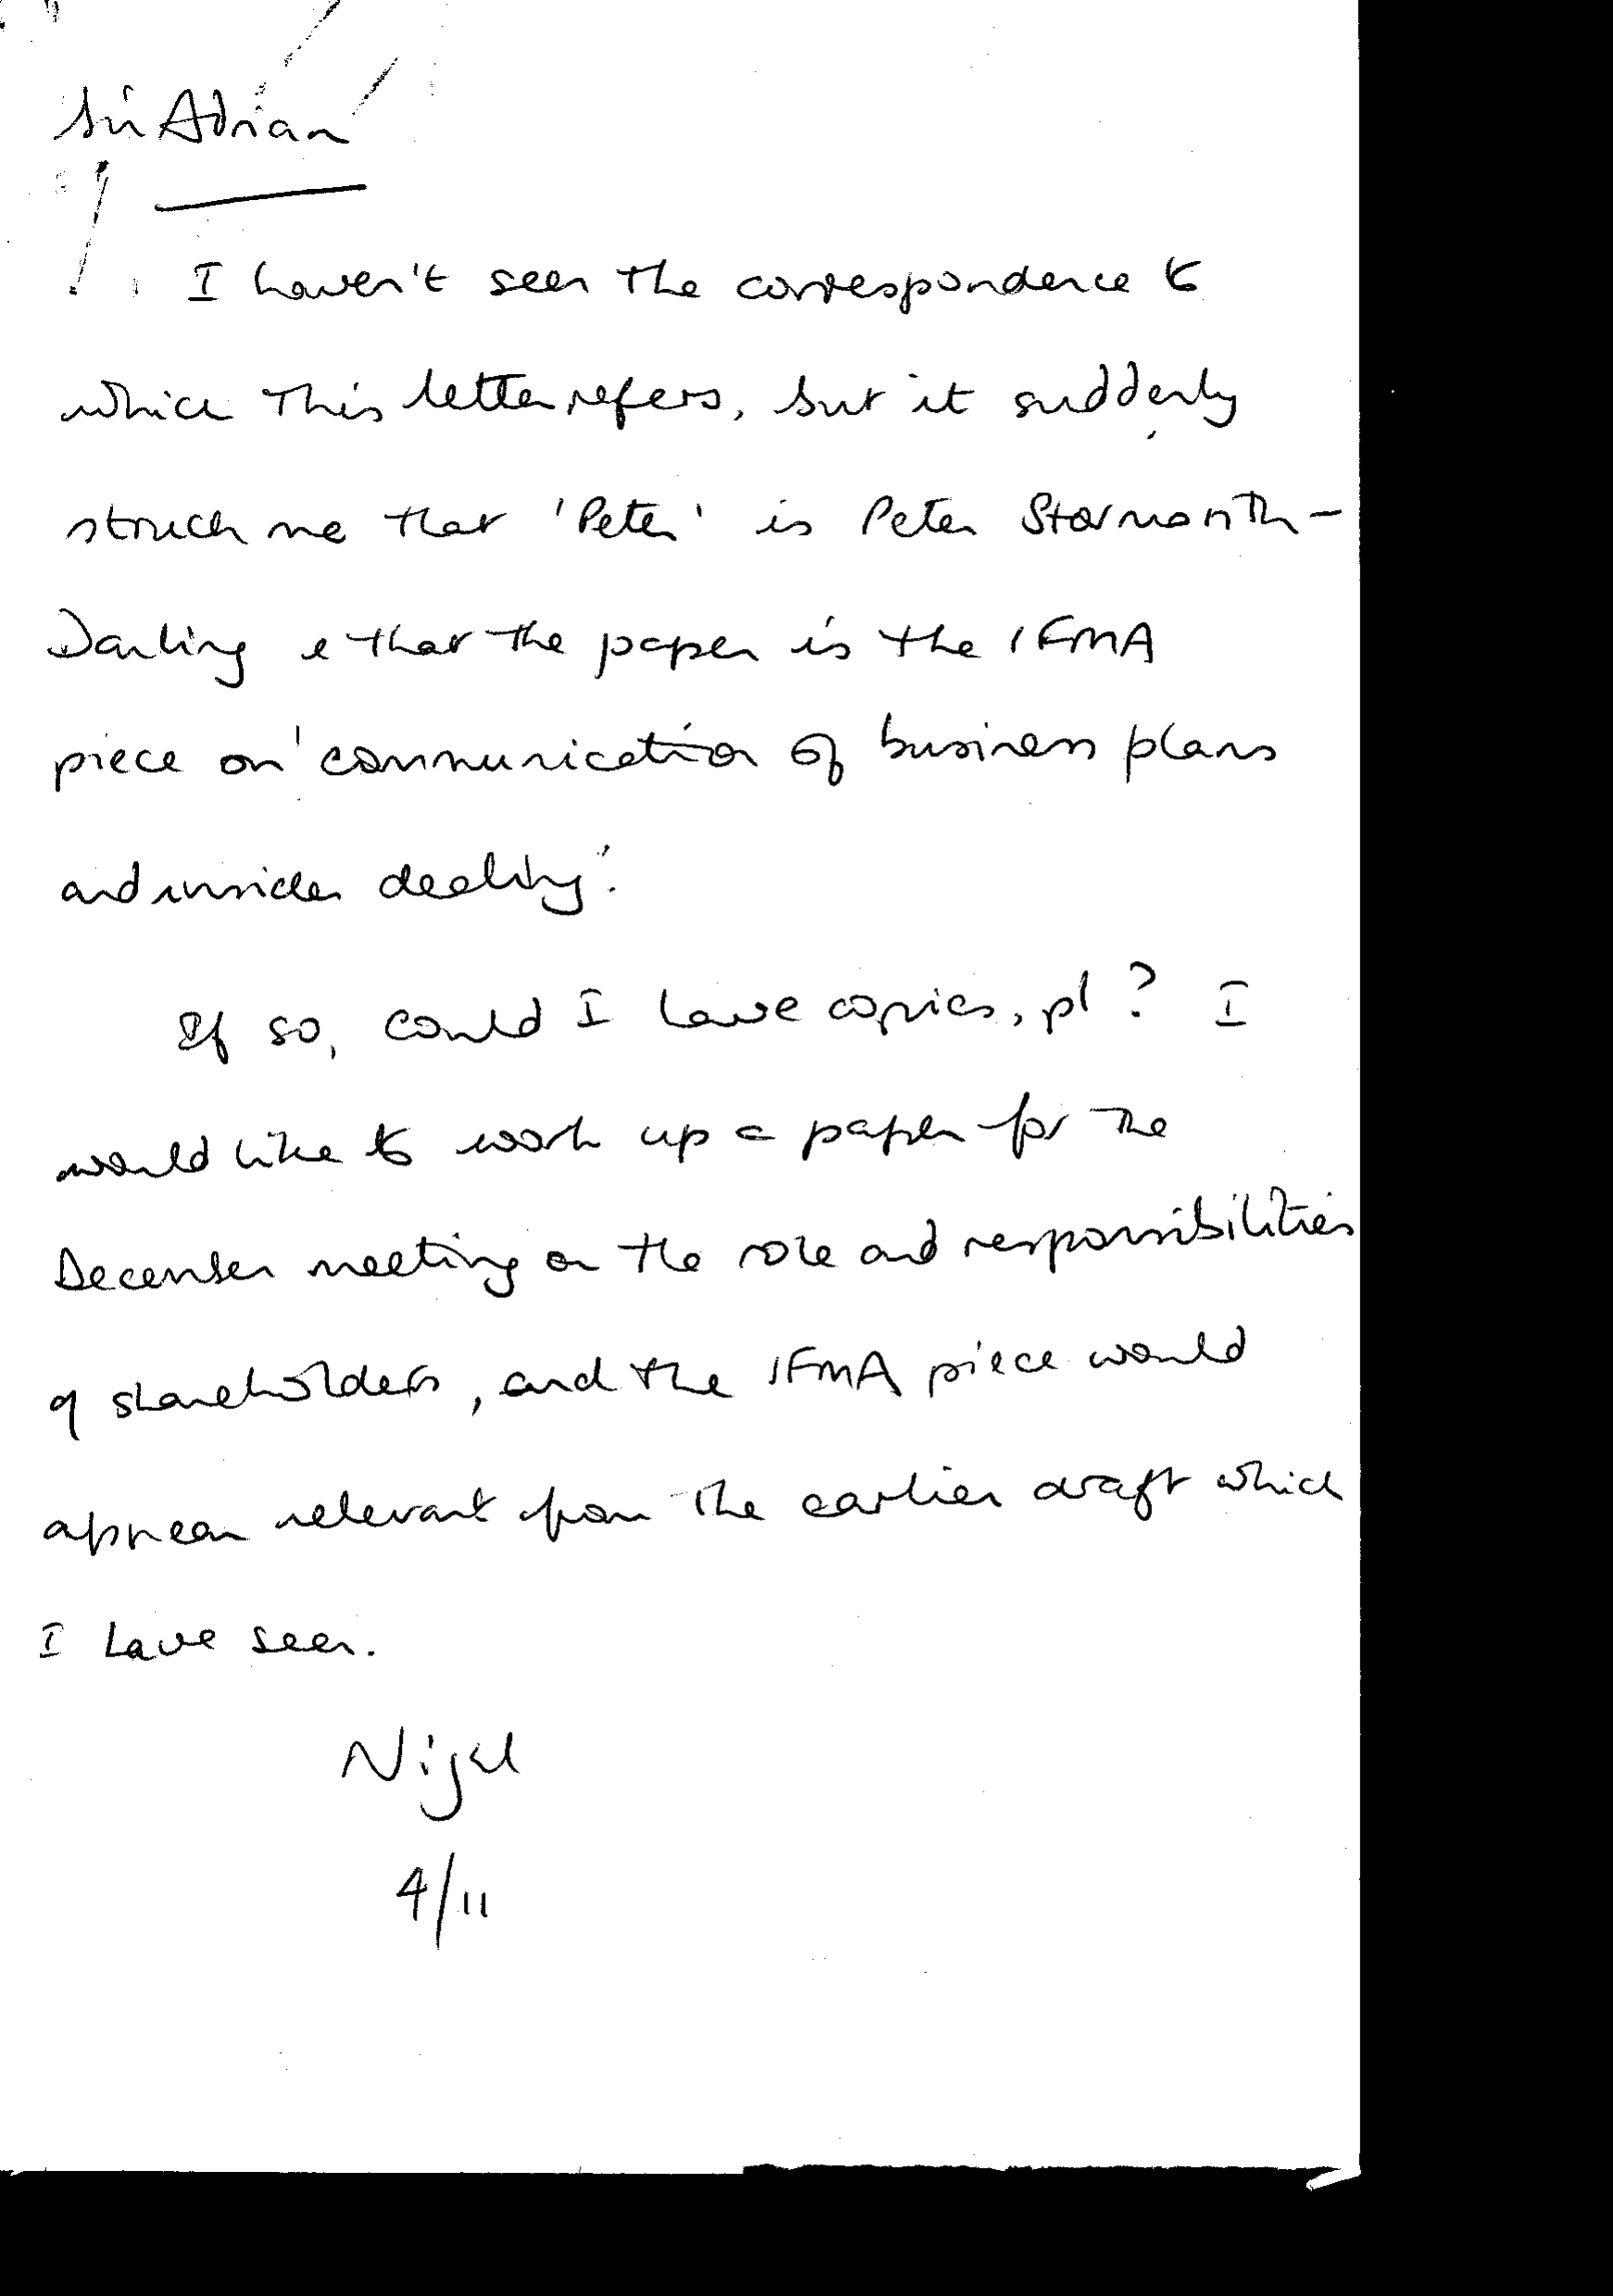 Sir Adrian
I haven't seen the correspondence to
which this letter refers, but it suddenly
struck me that 'Peter' is Peter Stormonth-
Darling & that the paper is the IFMA
piece on 'communication of business plans
and insider dealing'.
If so, could I have copies, pl? I
would like to work up a paper for the
December meeting on the role and responsibilities
of shareholders, and the IFMA piece would
appear relevant from the earlier draft which
I have seen.
Nigel
4/11